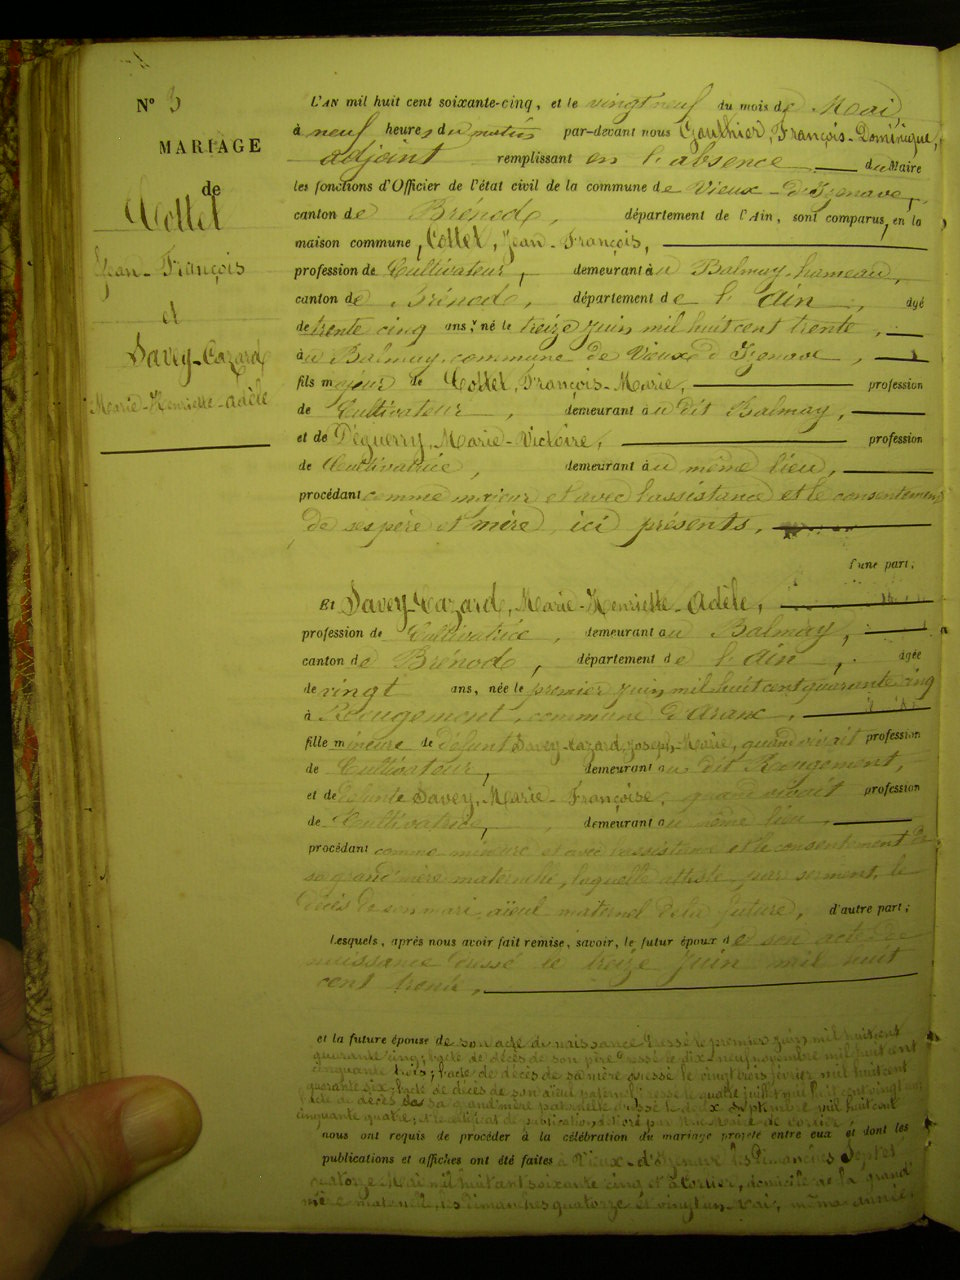 N° 3
MARIAGE
de
Collet
Jean-François
et
Savey-Cazard
Marie-Henriette-Adèle
L'AN mil huit cent soixante-cinq, et le vingt neuf du mois de Mai
à neuf heures du matin par-devant nous Gauthier, François-Dominique,
adjoint remplissant en l'absence du Maire
les fonctions d'Officier de l'état civil de la commune de Vieux-d'Izenave,
canton de Brénod, département de l'Ain, sont comparus, en la
maison commune, Collet, Jean-François,
profession de Cultivateur, demeurant au Balmay, hameau,
canton de Brénod, département de l'Ain, âgé
de trente cinq ans, né le treize Juin mil huit cent trente,
au Balmay, commune de Vieux d'Izenave,
fils majeur de Collet, François-Marie, profession
de Cultivateur, demeurant au dit Balmay,
et de Déguerry, Marie-Victoire, profession
de Cultivatrice, demeurant au même lieu,
procédant comme majeur et avec l'assistance et le consentement
de ses père et mère, ici présents,
d'une part;
Et Savey-Cazard, Marie-Henriette-Adèle,
profession de Cultivatrice, demeurant au Balmay,
canton de Brénod, département de l'Ain, âgée
de vingt ans, née le premier Juin mil huit cent quarante cinq
à Rougement, commune d'Aranc,
fille mineure de défunt Savey-Cazard, Joseph-Marie, quand vivait profession
de Cultivateur, demeurant au dit Rougement,
et de défunte Savey, Marie-Françoise, quand vivait profession
de Cultivatrice, demeurant au même lieu,
procédant comme mineure et avec l'assistance et le consentement de
sa grand'mère maternelle, laquelle atteste par serment, le
décès de son mari, aïeul maternel de la future, d'autre part;
Lesquels, après nous avoir fait remise, savoir, le futur époux de son acte de
naissance dressé le treize Juin mil huit
cent trente,
et la future épouse de son acte de naissance dressé le premier Juin mil huit cent
quarante cinq; l'acte de décès de son père dressé le dix-neuf novembre mil huit cent
cinquante trois; l'acte de décès de sa mère dressé le vingt trois février mil huit cent
quarante six; l'acte de décès de son aïeul paternel dressé le quatre juillet mil huit cent vingt
l'acte de décès de sa grand'mère paternelle dressé le deux Septembre mil huit cent
cinquante quatre, et le certificat de publication délivré par le Maire de Corlier
nous ont requis de procéder à la célébration du mariage projeté entre eux et dont les
publications et affiches ont été faites à Vieux-d'Izenave les Dimanches Sept et
quatorze Mai mil huit cent soixante cinq et à Corlier, domicile de la grand'
mère maternelle, les dimanches quatorze et vingt un Mai, même année,